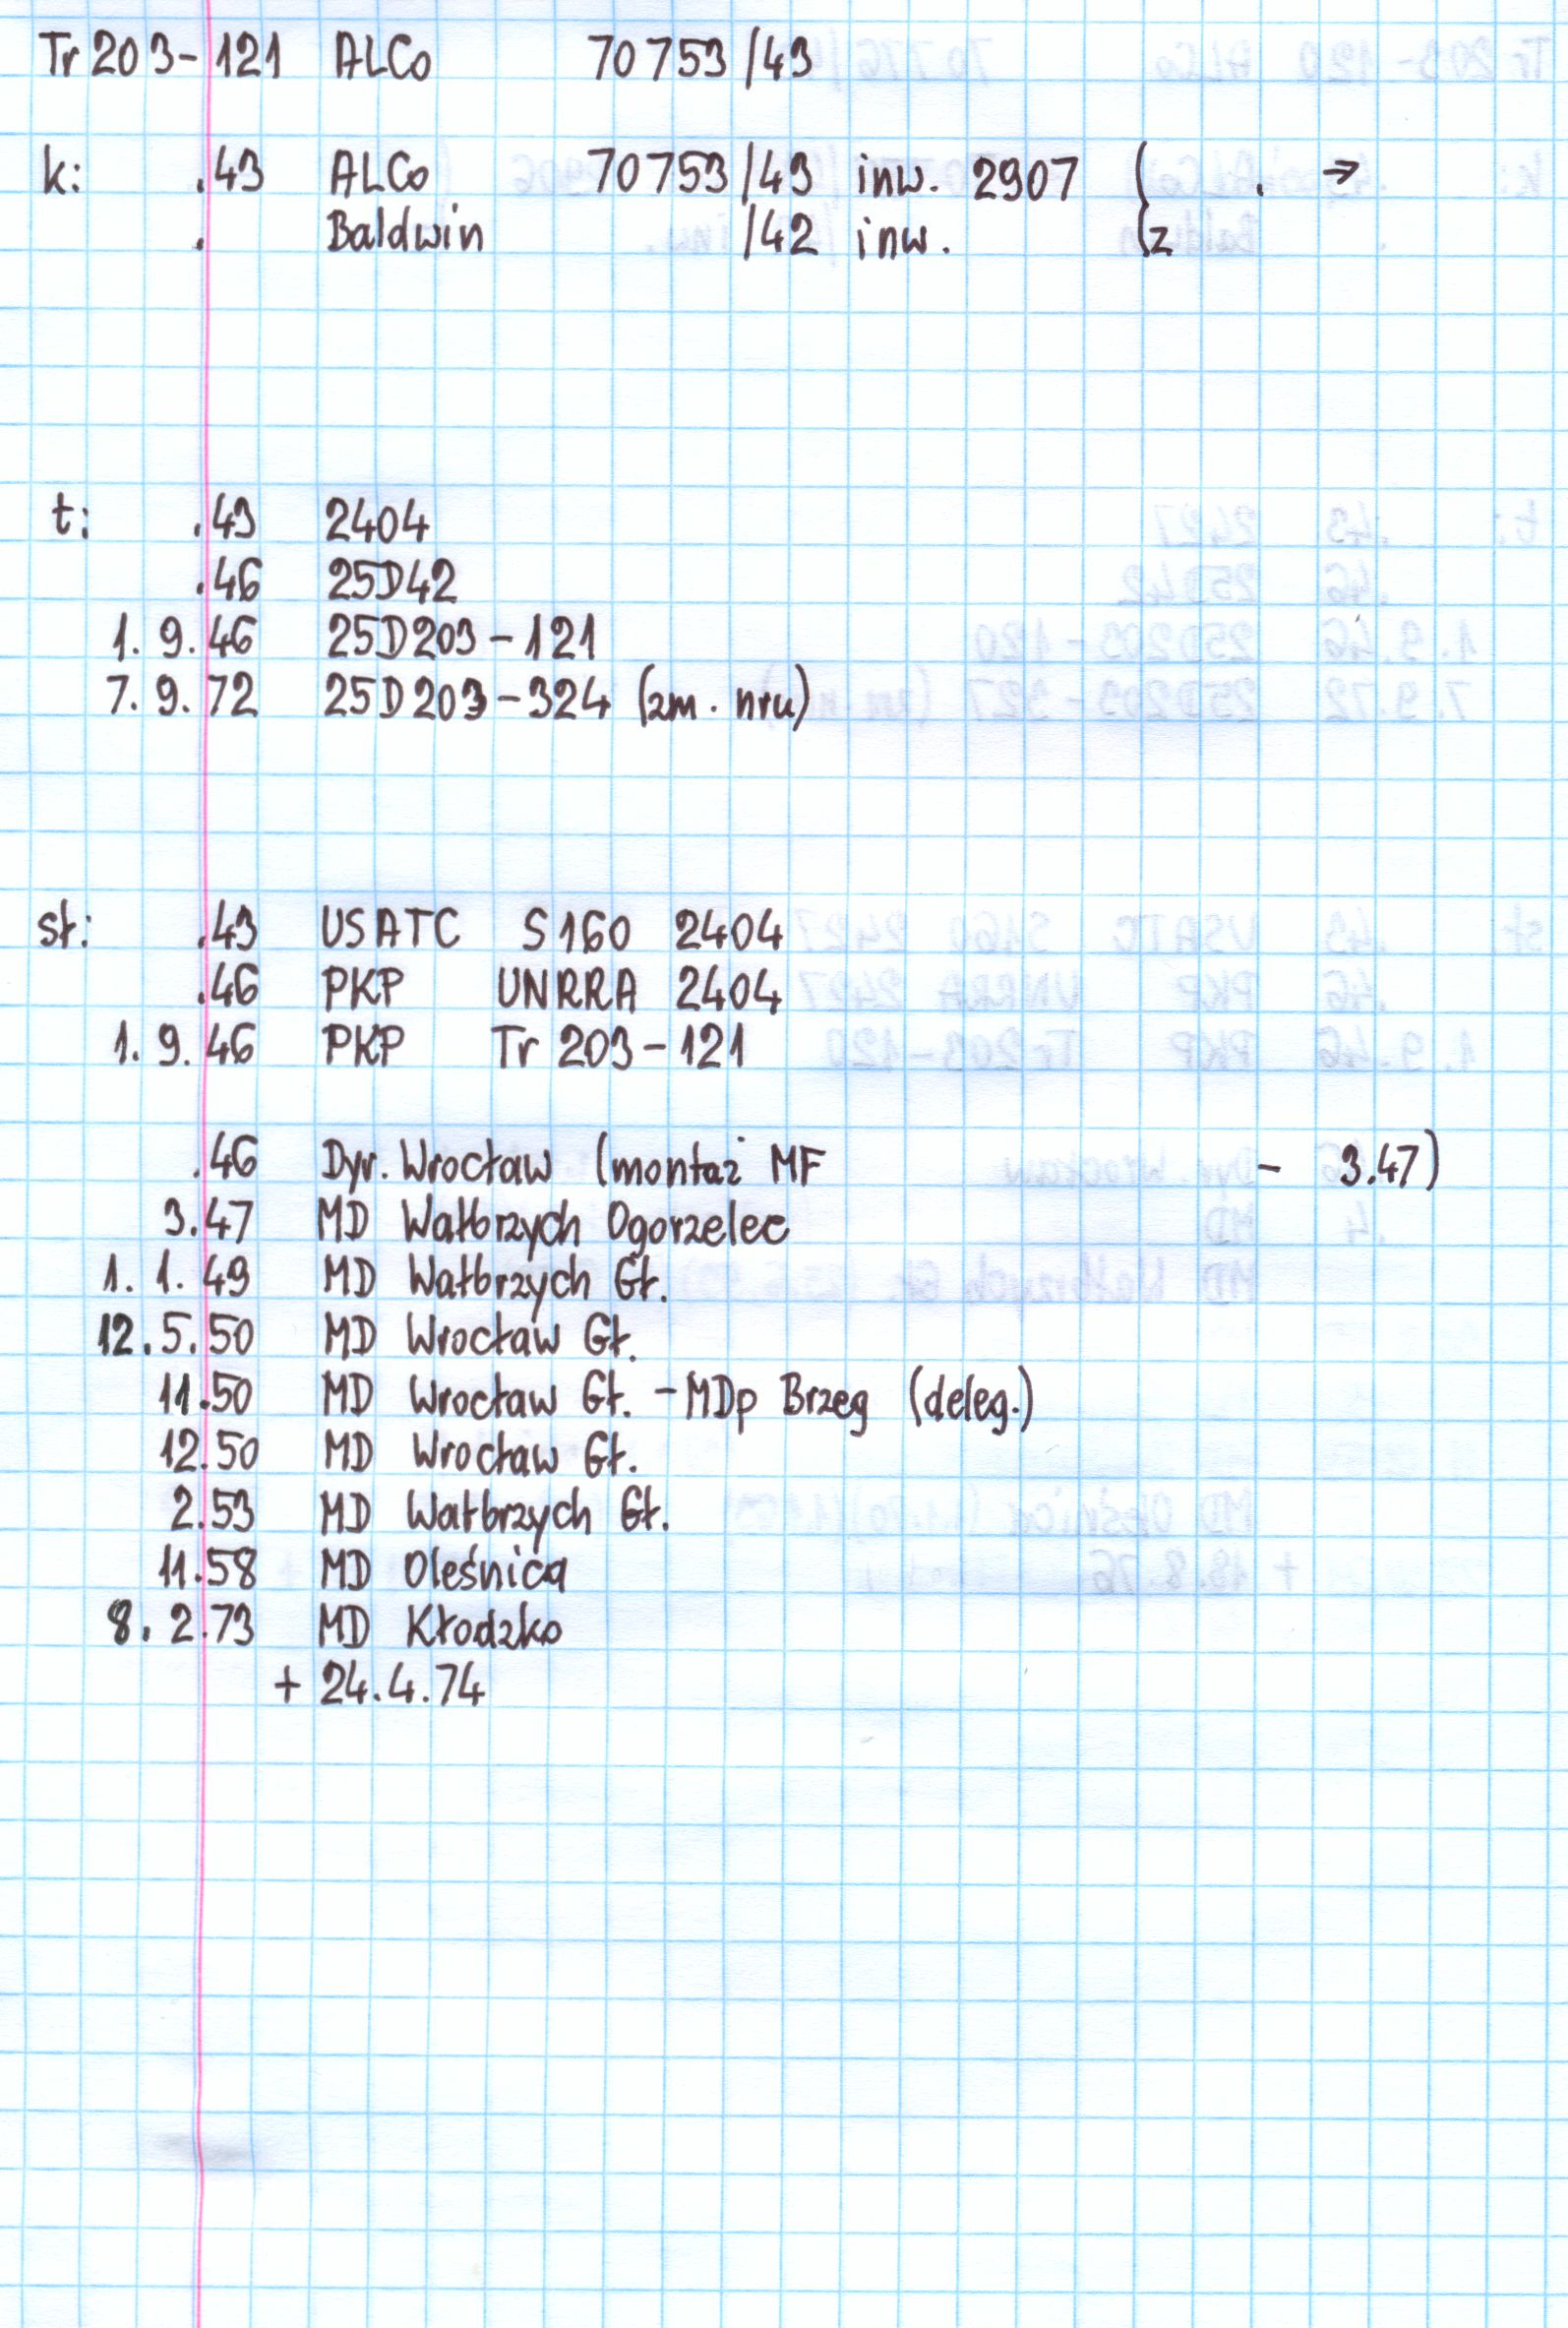 Tr 203-121 ALCo 70753/43
k: .43 ALCo 70753/43 inw. 2907 ( . →
. Baldwin /42 inw. (z
t: .43 2404
.46 25D42
1. 9.46 25D203-121
7. 9.72 25D203-324 (zm. nru)
st: .43 USATC S160 2404
.46 PKP UNRRA 2404
1. 9.46 PKP Tr 203-121
.46 Dyr. Wrocław (montaż MF - 3.47)
3.47 MD Wałbrzych Ogorzelec
1. 1.49 MD Wałbrzych Gł.
12.5.50 MD Wrocław Gł.
11.50 MD Wrocław Gł. -MDp Brzeg (deleg.)
12.50 MD Wrocław Gł.
2.53 MD Wałbrzych Gł.
11.58 MD Oleśnica
8. 2.73 MD Kłodzko
+ 24.4.74